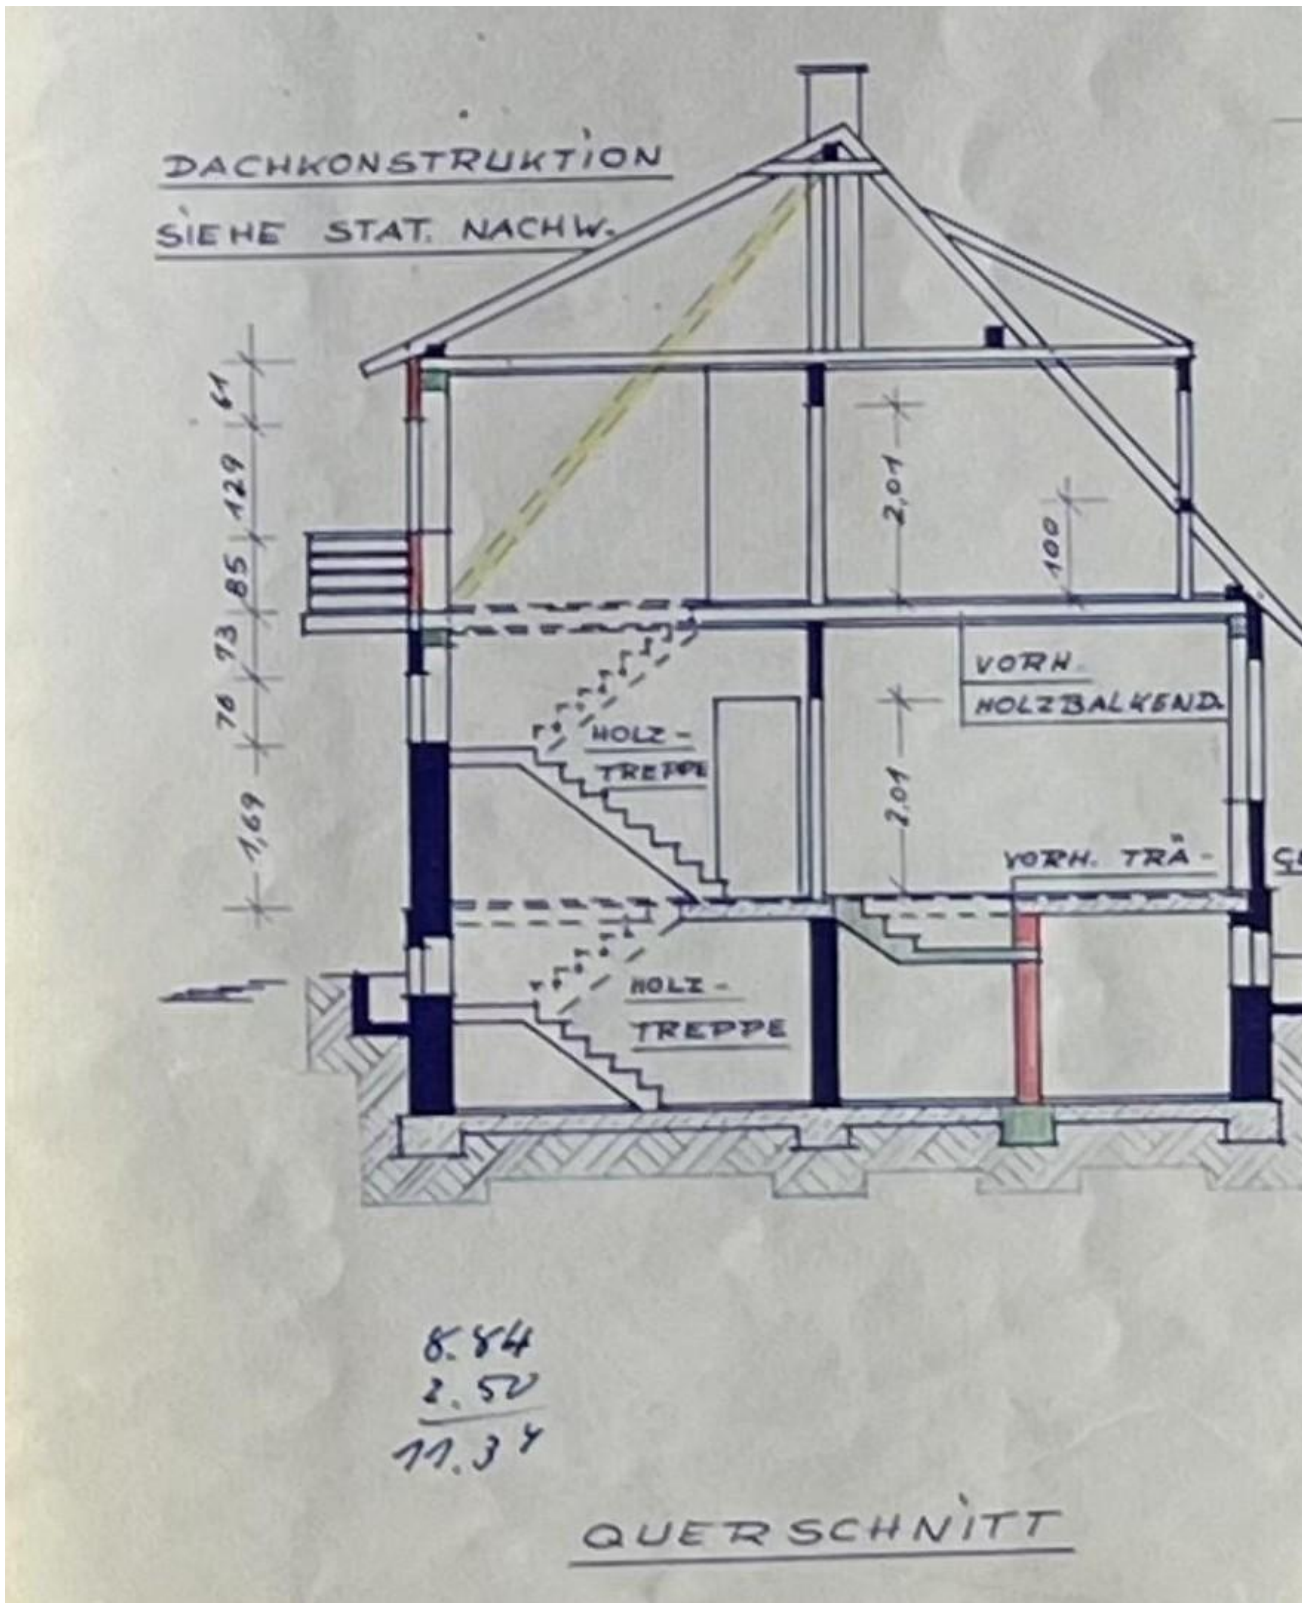 DACHKONSTRUKTION
SIEHE STAT. NACHW.
61
129
85
73
78
1,69
2,01
100
VORH.
HOLZBALKEND.
HOLZ-
TREPPE
2,01
VORH. TRÄ-
HOLZ-
TREPPE
8.84
2.50
11.34
QUERSCHNITT